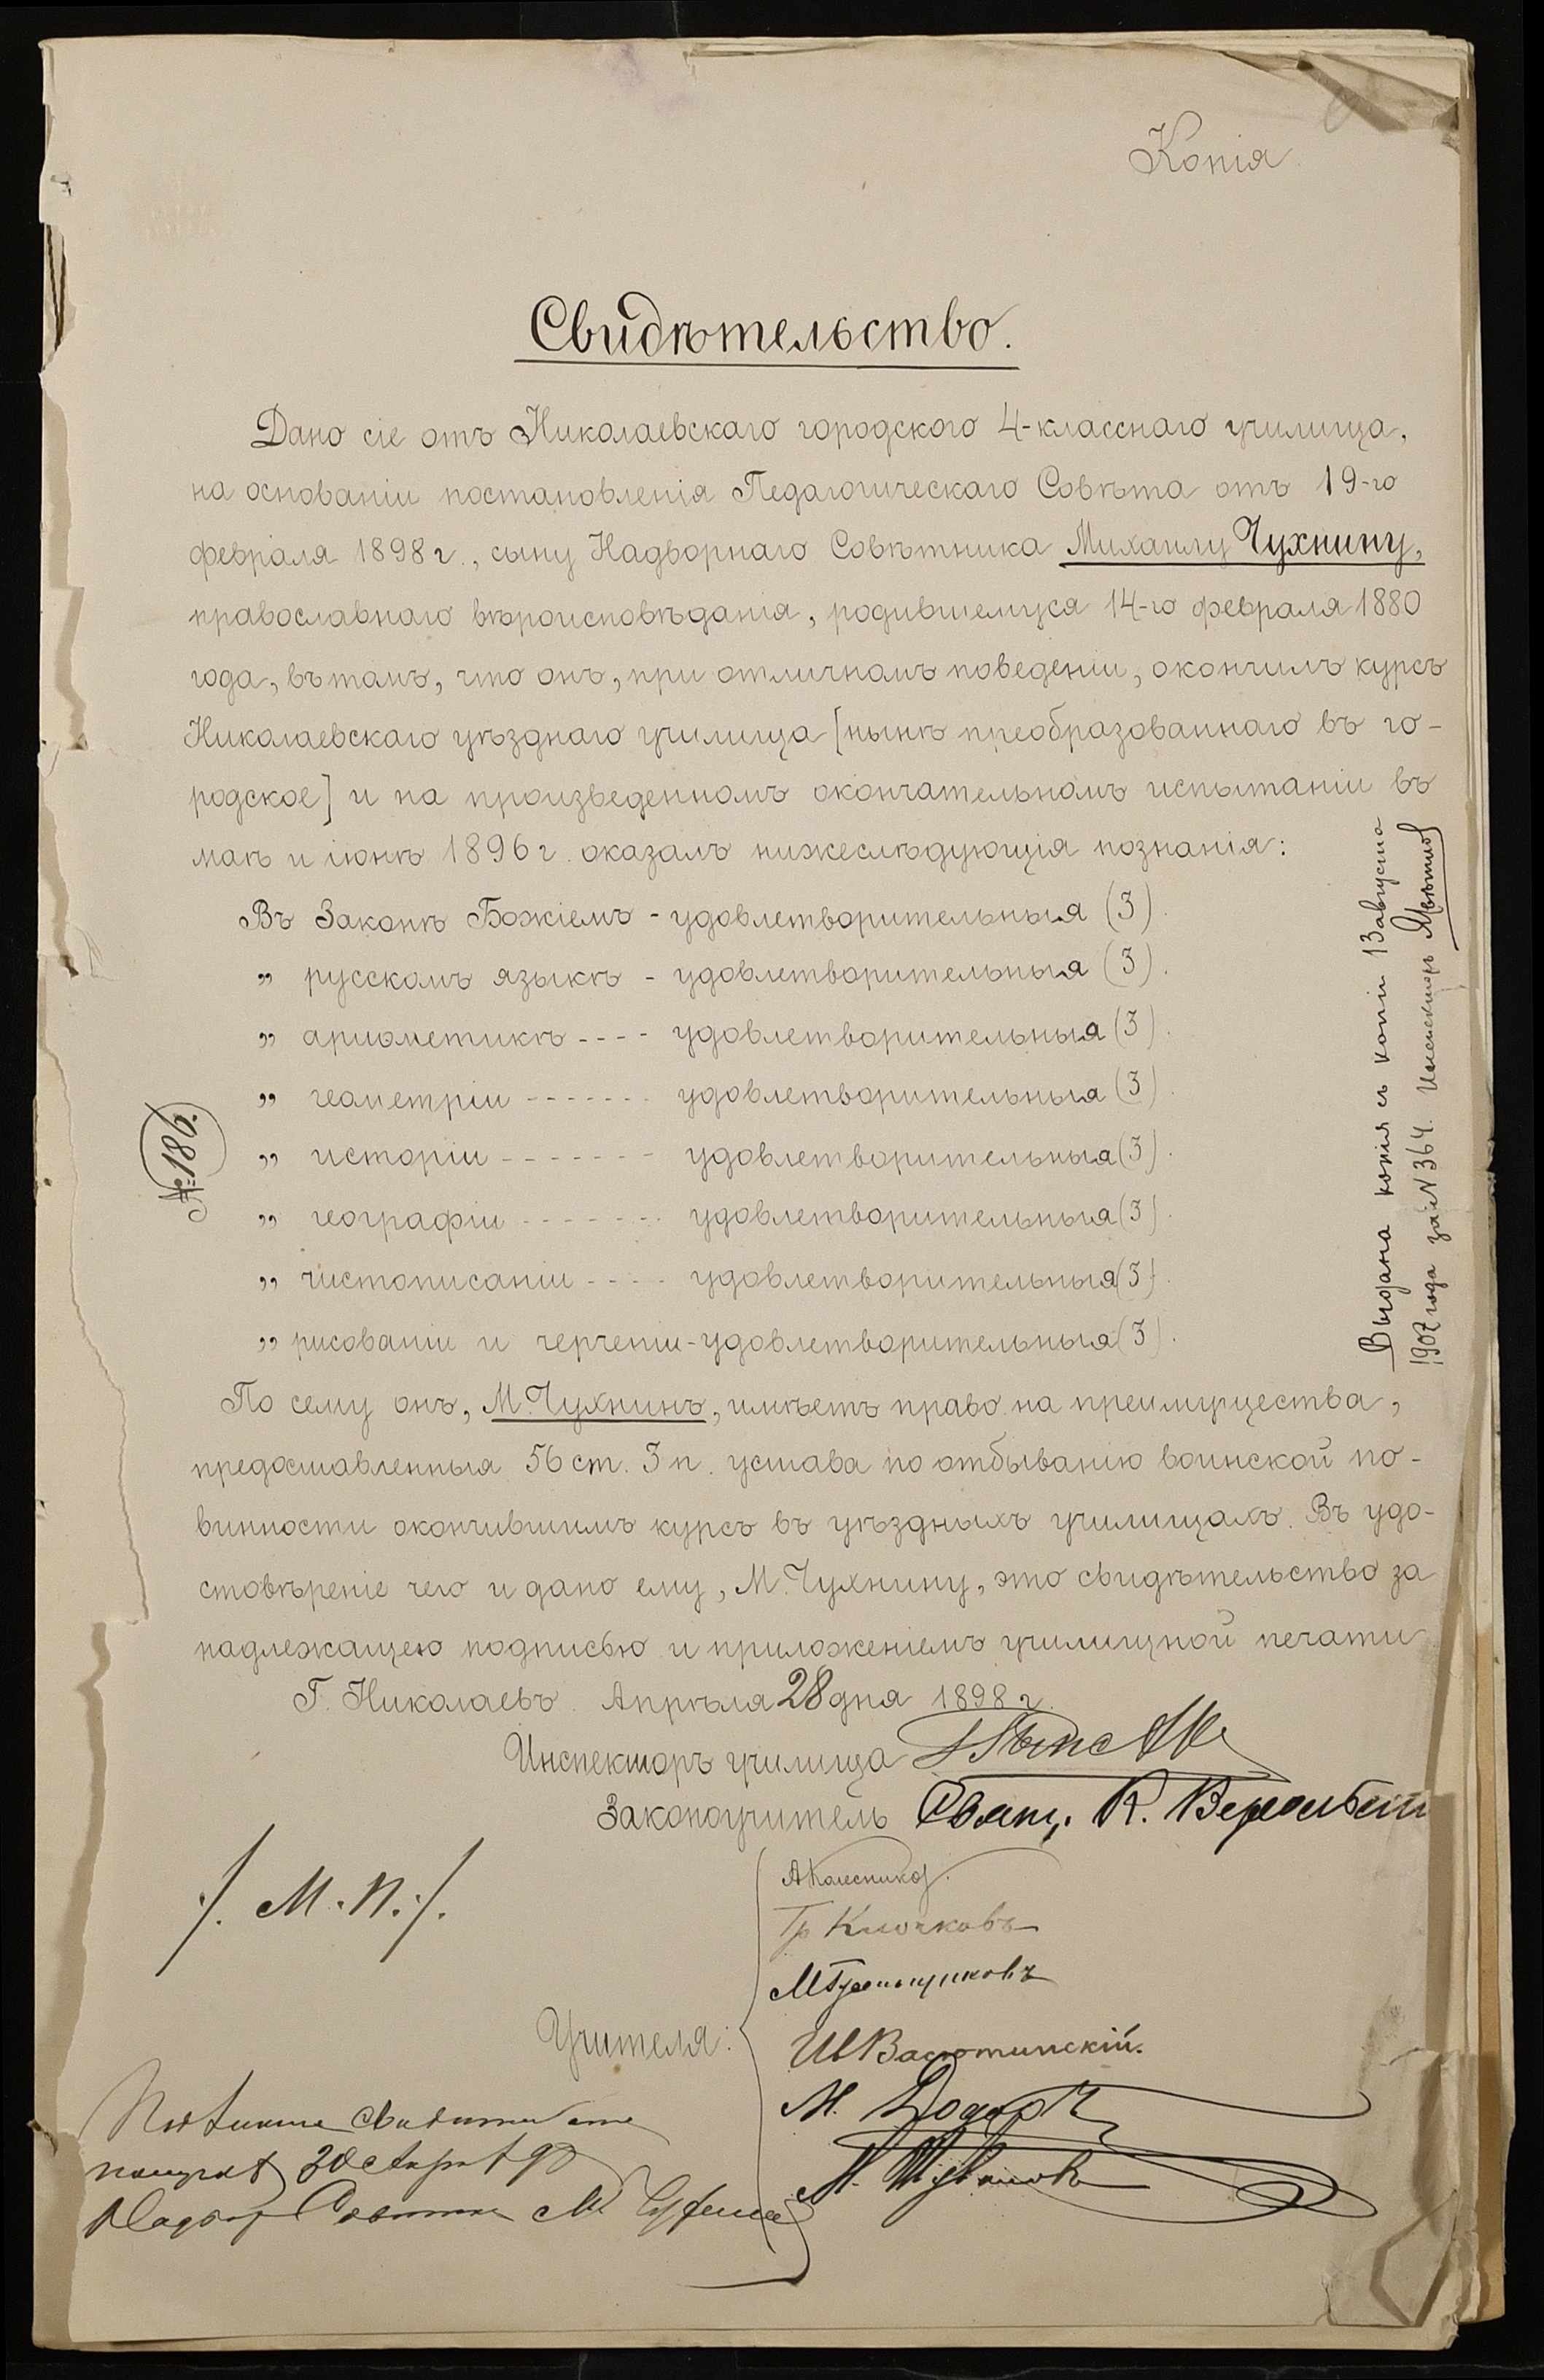 Копія.
Свидѣтельство.
Дано сіе отъ Николаевскаго городского 4-класснаго училища,
на основаніи постановленія Педагогическаго Совѣта отъ 19-го
февраля 1898 г., сыну Надворнаго Совѣтника Михаилу Чухнину,
православнаго вѣроисповѣданія, родившемуся 14-го февраля 1880
года, въ томъ, что онъ, при отличномъ поведеніи, окончилъ курсъ
Николаевскаго уѣзднаго училища [нынѣ преобразованнаго въ го-
родское] и на произведенномъ окончательномъ испытаніи въ
маѣ и іюнѣ 1896 г. оказалъ нижеслѣдующія познанія:
Въ Законѣ Божіемъ - удовлетворительныя (3).
„ русскомъ языкѣ - удовлетворительныя (3).
„ ариѳметикѣ - - - - удовлетворительныя (3).
„ геометріи - - - - - - - удовлетворительныя (3).
„ исторіи - - - - - - - удовлетворительныя (3).
„ географіи - - - - - - - удовлетворительныя (3).
„ чистописаніи - - - - удовлетворительныя (3).
„ рисованіи и черченіи - удовлетворительныя (3).
По сему онъ, М. Чухнинъ, имѣетъ право на преимущества,
предоставленныя 56 ст. 3 п. устава по отбыванію воинской по-
винности окончившимъ курсъ въ уѣздныхъ училищахъ. Въ удо-
стовѣреніе чего и дано ему, М. Чухнину, это свидѣтельство за
надлежащею подписью и приложеніемъ училищной печати
Г. Николаевъ. Апрѣля 28 дня 1898 г.
Инспекторъ училища
Законоучитель Свящ. К.
/. М. П. /.
Учителя:
А Колесников
Гр Клочковъ
М
Ив Васютинскій.
М.
М.
свидетельство
получилъ
Надвор Советник М Чухнин
№ 186.
Выдана копія съ копіи 13 августа
1907 года за № 364. Инспекторъ